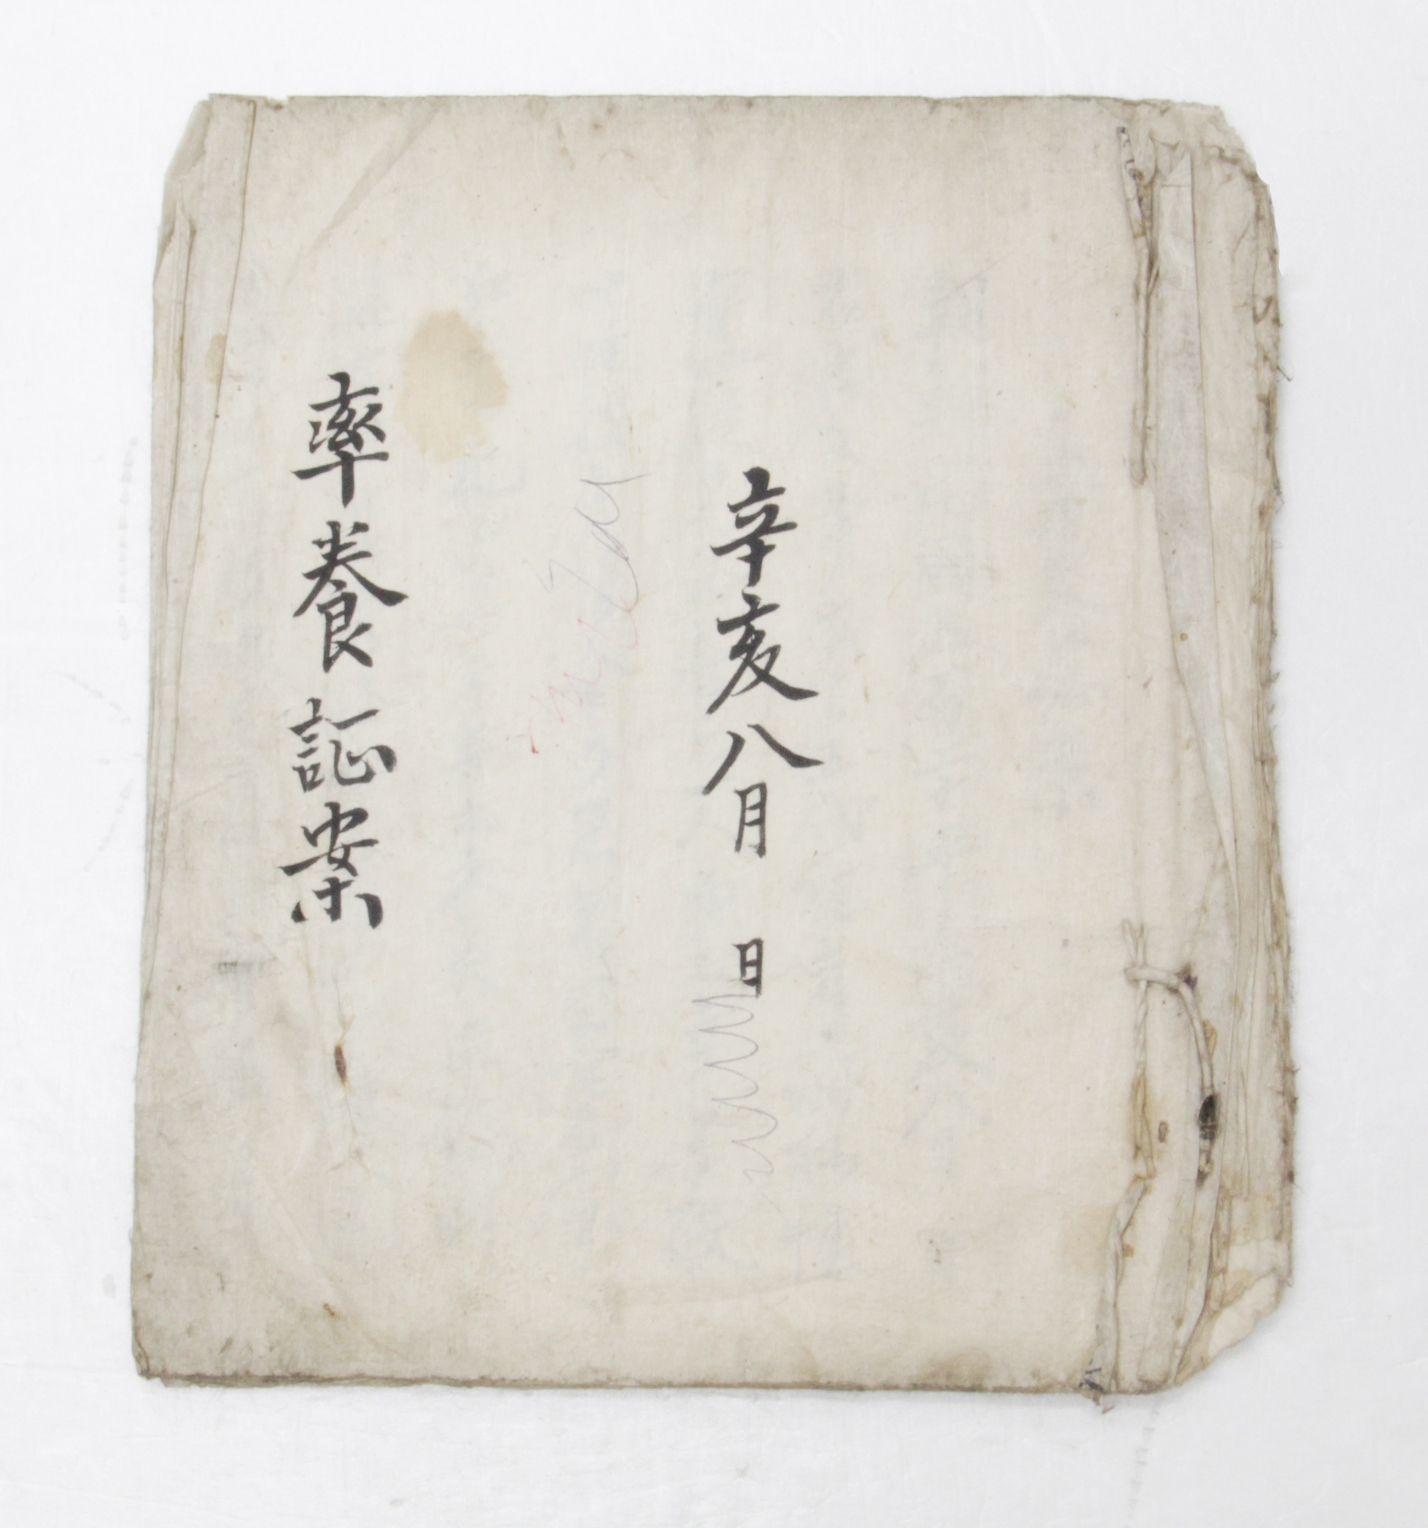 辛亥八月 日
率養証案